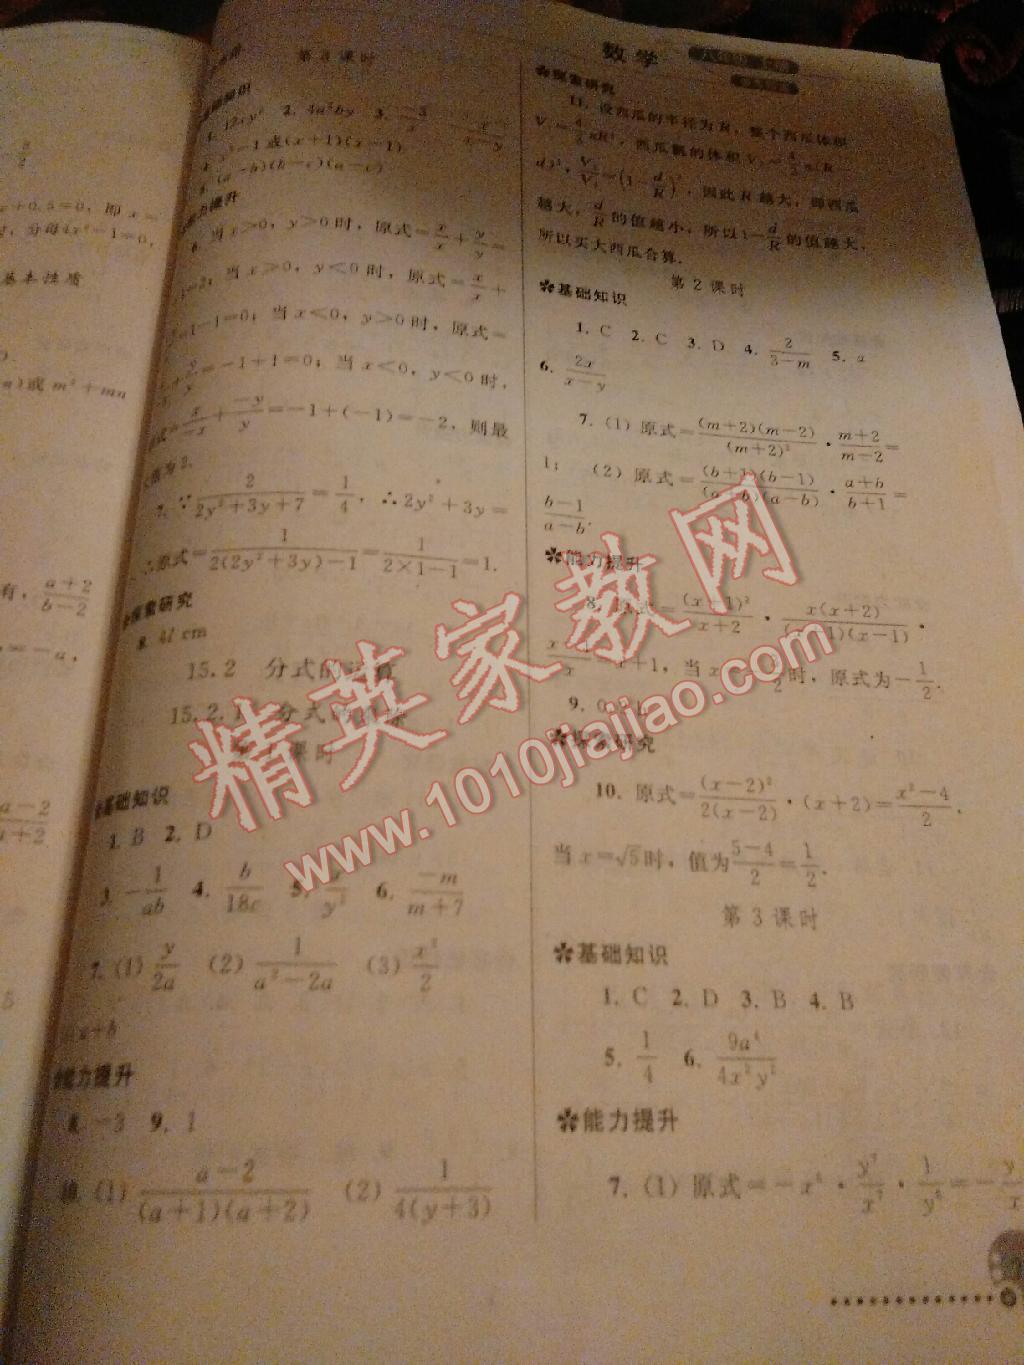 数学
第3课时
2. 4a²by
x²-1或(x+1)(x-1)
(a-b)(b-c)(a-c)
能力提升
6. 当x>0，y>0时，原式=x/x+y/y=
1+1=2；当x>0，y<0时，原式=x/x+
=1-1=0；当x<0，y>0时，原式=
=-1+1=0；当x<0，y<0时，
原式=x/-x+-y/y=-1+(-1)=-2，则最
大值为2.
7. ∵2/2y²+3y+7=1/4，∴2y²+3y=
∴原式=1/2(2y²+3y)-1=1/2×1-1=1.
✽探索研究
8. 41 cm
15.2 分式的运算
15.2.1 分式的乘除
第1课时
✽基础知识
1. B 2. D
3. -1/ab 4. b/18c 5. 6. -m/m+7
7. (1) y/2a (2) 1/a²-2a (3) x²/2
✽能力提升
8. -3 9. 1
10. (1) a-2/(a+1)(a+2) (2) 1/4(y+3)
✽探索研究
11. 设西瓜的半径为R，整个西瓜体积
V₁=4/3πR³，西瓜瓤的体积V₂=4/3π(R-
d)³，V₂/V₁=(1-d/R)³，因此R越大，即西瓜
越大，d/R的值越小，所以1-d/R的值越大，
所以买大西瓜合算.
第2课时
✽基础知识
1. C 2. C 3. D 4. 2/3-m 5. a
6. 2x/x-y
7. (1) 原式=(m+2)(m-2)/(m+2)²·m+2/m-2=
1； (2) 原式=(b+1)(b-1)/(a+b)(a-b)·a+b/b+1=
b-1/a-b.
✽能力提升
8. 原式=(x+1)²/x+2·x(x+2)/(x+1)(x-1)·
x-1/x=x+1，当x=-3/2时，原式为-1/2.
✽探索研究
10. 原式=(x-2)²/2(x-2)·(x+2)=x²-4/2.
当x=√5时，值为5-4/2=1/2.
第3课时
✽基础知识
1. C 2. D 3. B 4. B
5. 1/4 6. 9a⁴/4x²y²
✽能力提升
7. (1) 原式=-x⁶·y⁷/x⁷·1/y⁶=-y/x
精英家教网
www.1010jiajiao.com
x+0.5=0，即x=
时，分母4x²-1=0，
基本性质
a)或m²+mn
有，a+2/b-2
=-a，
a-2/a+2